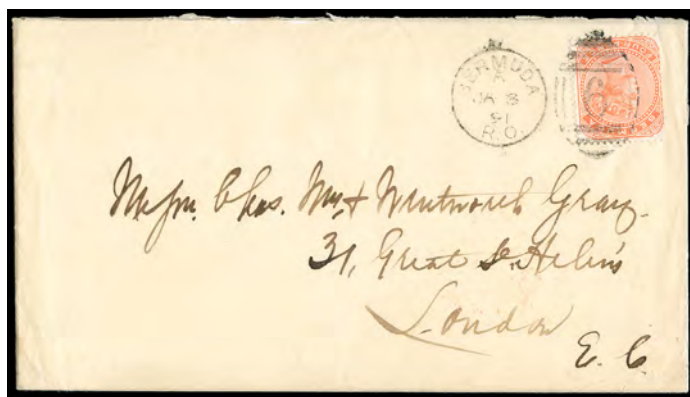 BERMUDA
A
JA 8
91
R.O.
6
Messrs. Chas. Wm. & Wentworth Gray.
31, Great St. Helen's
London
E. C.